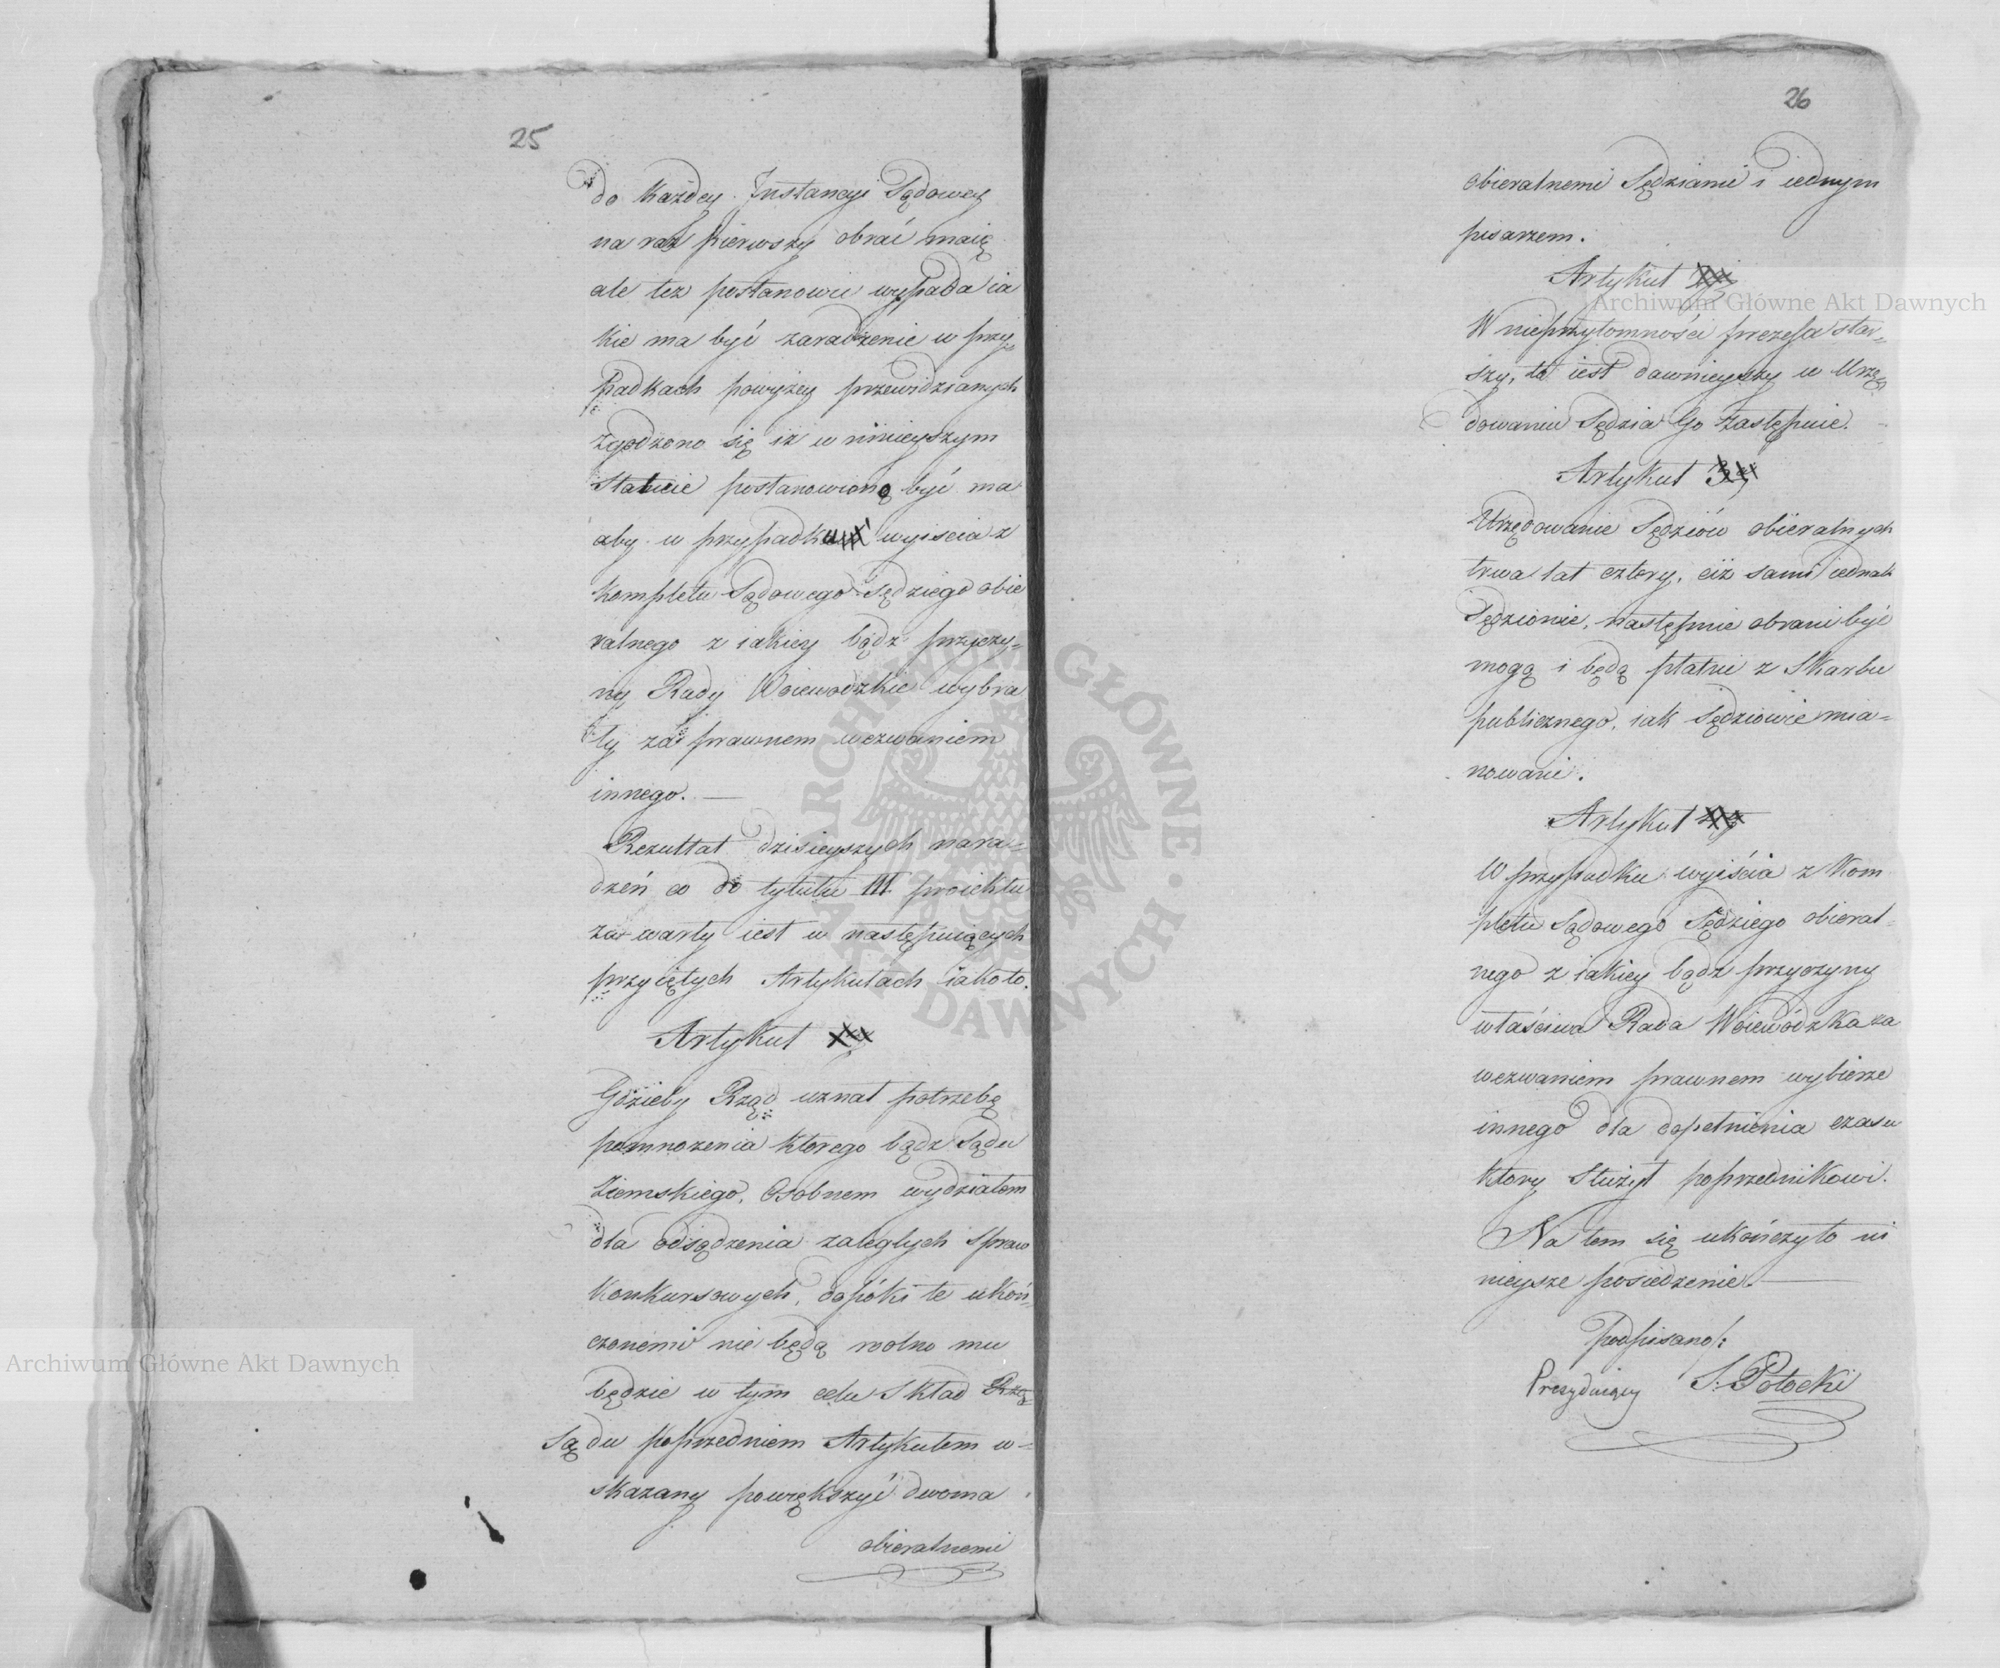 25
do każdey Instancyi Sądowey
na raz pierwszy obrać maią
ale też postanowić wypada ia
kie ma być zaradzenie w przy
padkach powyżey przewidzianych
zgodzono się iż w ninieyszym
Statucie postanowiono być ma
aby w przypadku wyiscia z
kompletu Sądowego Sędziego obie
ralnego z iakiey bądź przyczy-
ny Rady Woiewodzkie wybra
ły za prawnem wezwaniem
innego. —
Rezultat dzisieyszych nara-
dzeń co do tytułu III. proiektu
zawarty iest w następuiących
przyiętych Artykułach iakoto.
Artykuł
Gdzieby Rząd uznał potrzebę
pomnożenia ktorego bądź Sądu
Ziemskiego, Osobnem wydziałem
dla odsądzenia zaległych spraw
konkursowych, dopóki te ukoń-
czonemi nie będą wolno mu
będzie w tym celu skład
Sądu poprzedniem Artykułem w-
skazany powiększyć dwoma
obieralnemi
26
obieralnemi Sędziami i iednym
pisarzem.
Artykuł
W nieprzytomności prezesa star-
szy, to iest dawnieyszy w Urzę-
dowaniu Sędzia Go zastępuie.
Artykuł 3
Urzędowanie Sędziów obieralnych
trwa lat cztery, ciż sami iednak
Sędziowie, następnie obrani być
mogą i będą płatni z Skarbu
publicznego, iak Sędziowie mia-
nowani.
Artykuł
W przypadku wyiścia z kom
pletu Sądowego Sędziego obieral-
nego z iakiey bądź przyczyny
właściwa Rada Woiewódzka za
wezwaniem prawnem wybierze
innego dla dopełnienia czasu
ktory służył poprzednikowi.
Na tem się ukończyło ni
nieysze posiedzenie. —
Podpisano/:
Prezyduiący S: Potocki
Archiwum Główne Akt Dawnych
Archiwum Główne Akt Dawnych
ARCHIWUM GŁÓWNE · AKT DAWNYCH ·